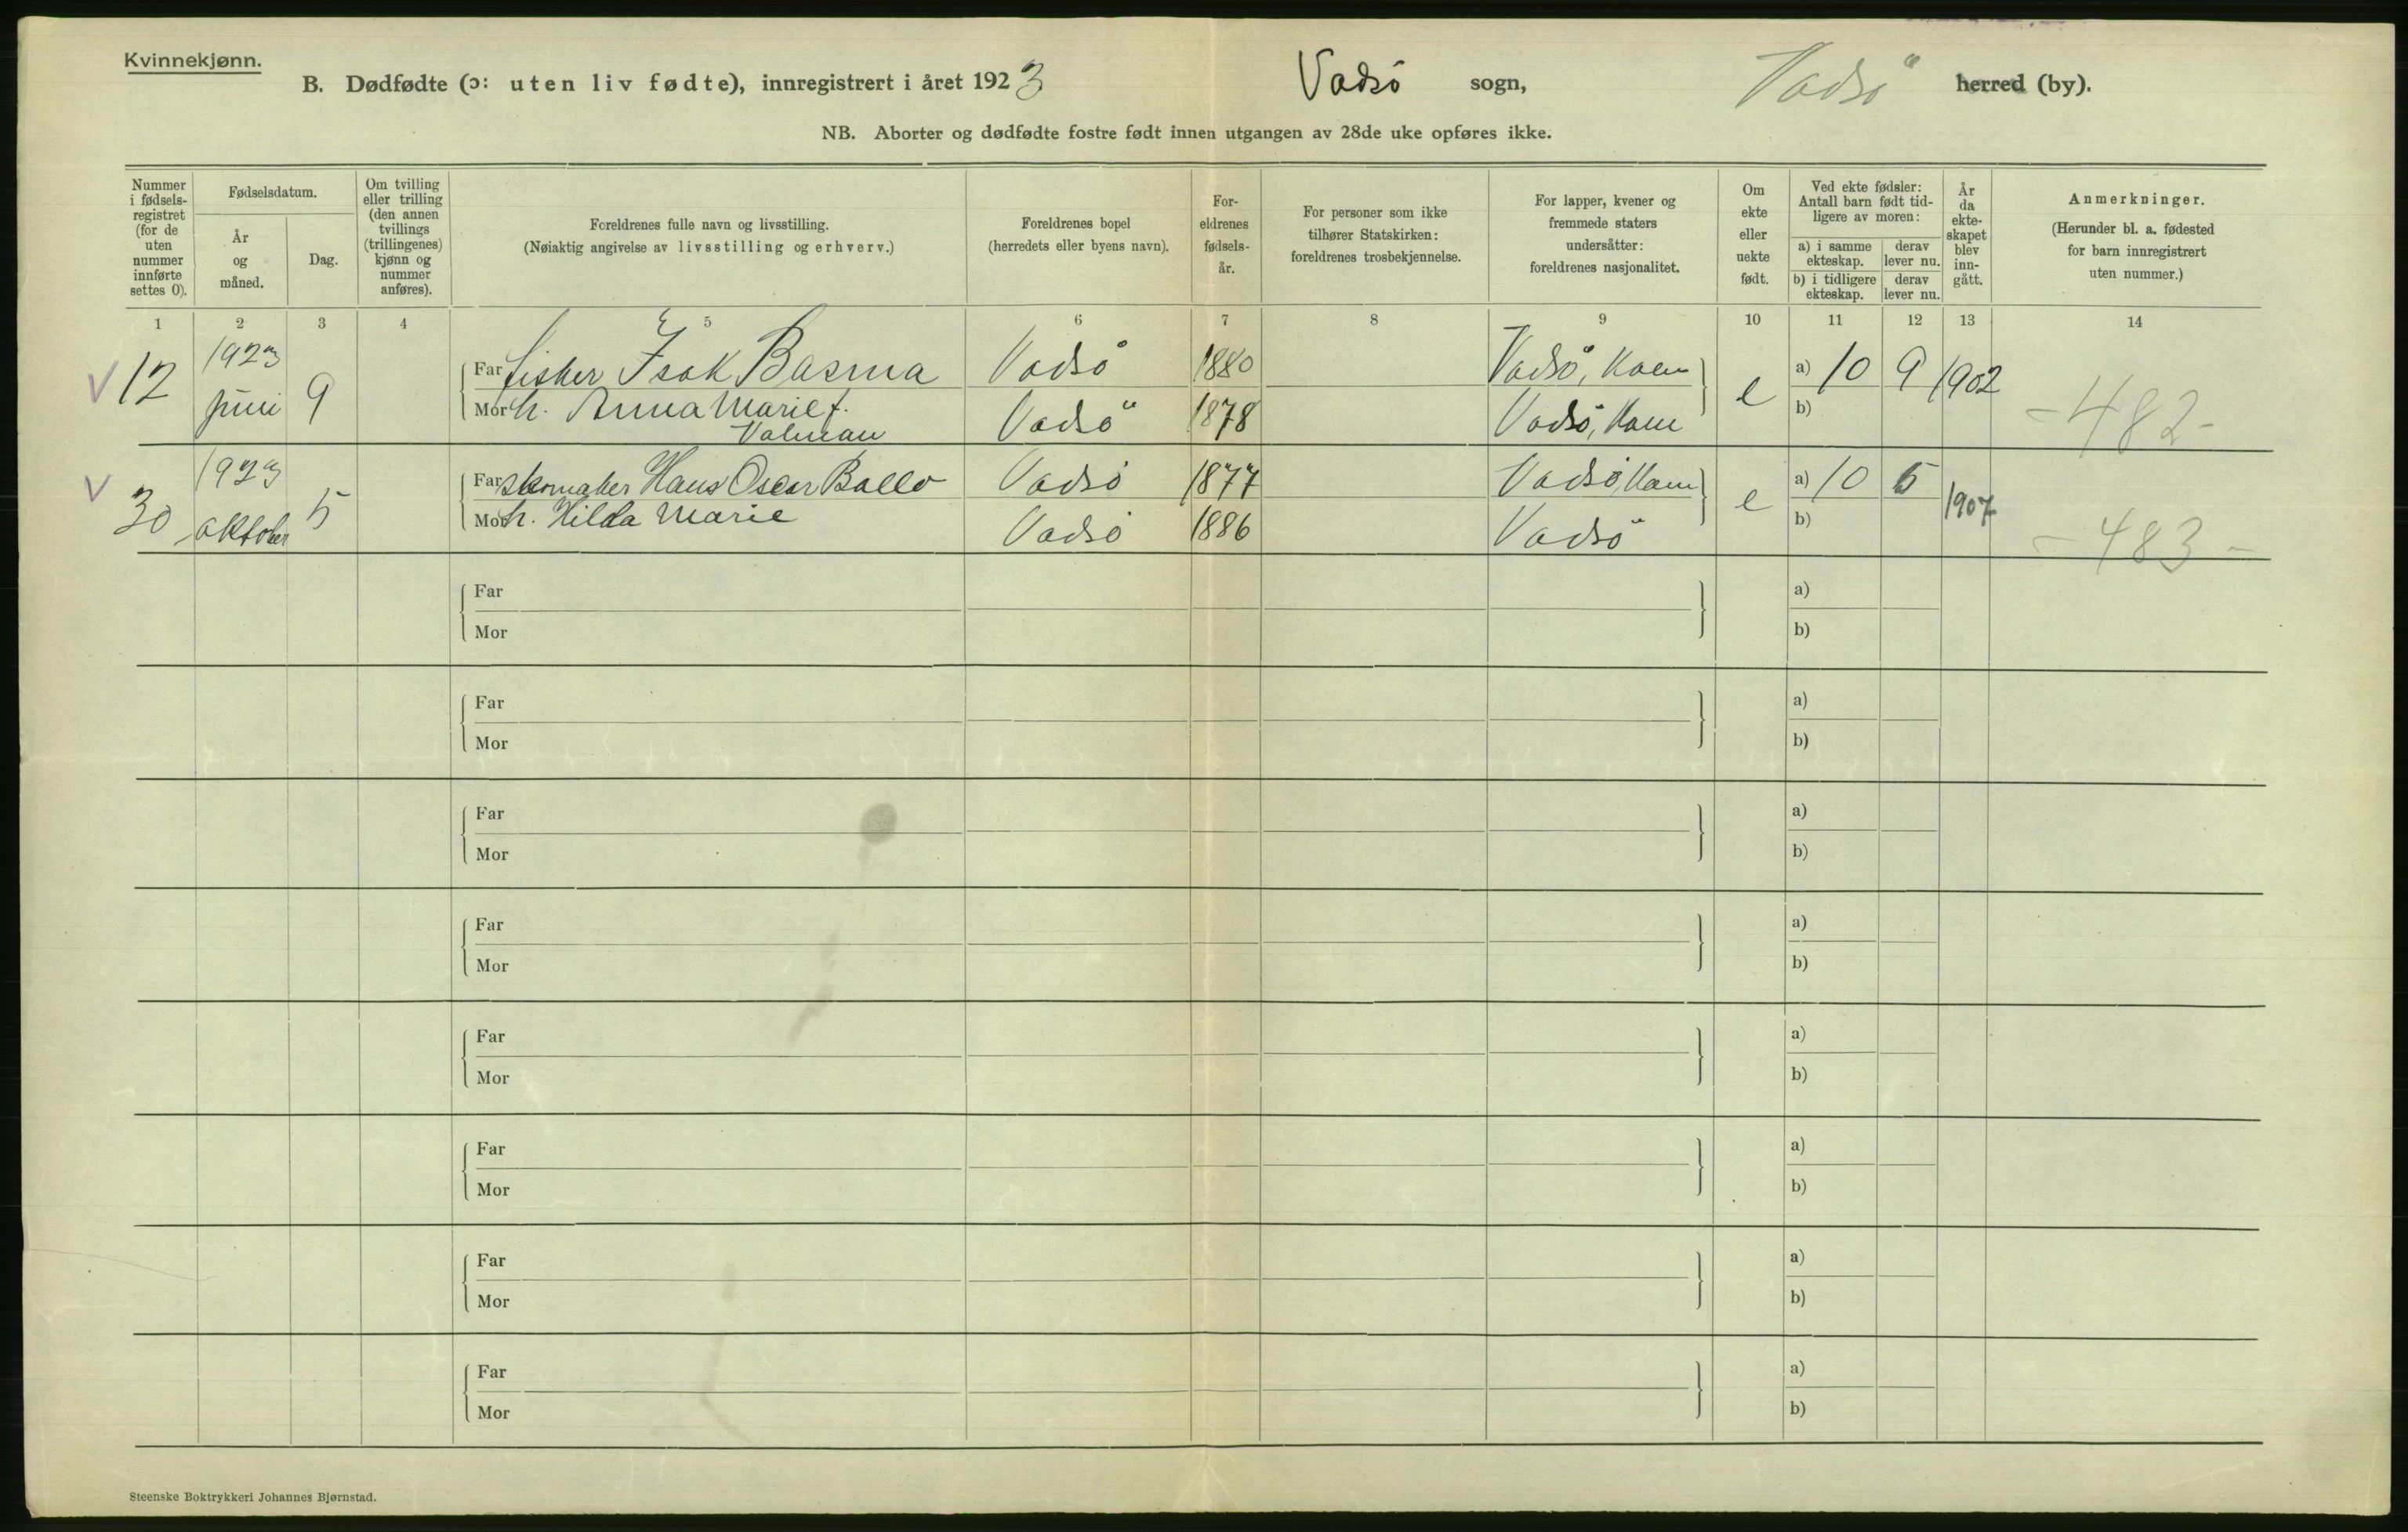 Kvinnekjønn.
B. Dødfødte (ɔ: uten liv fødte), innregistrert i året 1923 Vadsö sogn, Vadsö herred (by).
NB. Aborter og dødfødte fostre født innen utgangen av 28de uke opføres ikke.
Nummer i fødsels-registret (for de uten nummer innførte settes 0).
Fødselsdatum.
År og måned.
Dag.
Om tvilling eller trilling (den annen tvillings (trillingenes) kjønn og nummer anføres).
Foreldrenes fulle navn og livsstilling.
(Nøiaktig angivelse av livsstilling og erhverv.)
Foreldrenes bopel
(herredets eller byens navn).
For-eldrenes fødsels-år.
For personer som ikke tilhører Statskirken: foreldrenes trosbekjennelse.
For lapper, kvener og fremmede staters undersåtter: foreldrenes nasjonalitet.
Om ekte eller uekte født.
Ved ekte fødsler: Antall barn født tid-ligere av moren:
a) i samme ekteskap. derav lever nu.
b) i tidligere ekteskap. derav lever nu.
År da ekte-skapet blev inn-gått.
Anmerkninger.
(Herunder bl. a. fødested for barn innregistrert uten nummer.)
1 2 3 4 5 6 7 8 9 10 11 12 13 14
V 12 1923 juni 9
Far fisker Isak Basma Vadsö 1880 Vadsö, Kven e a) 10 9 1902
Mor h. Anna Marie f. Vadsö 1878 Vadsö, b) -482-
V 30 1923 oktober 5
Far skomaker Hans Oscar Ballo Vadsö 1877 Vadsö, e a) 10 5 1907
Mor h. Hilda Marie Vadsö 1886 Vadsö b) -483-
Far a)
Mor b)
Far a)
Mor b)
Far a)
Mor b)
Far a)
Mor b)
Far a)
Mor b)
Far a)
Mor b)
Far a)
Mor b)
Far a)
Mor b)
Steenske Boktrykkeri Johannes Bjørnstad.